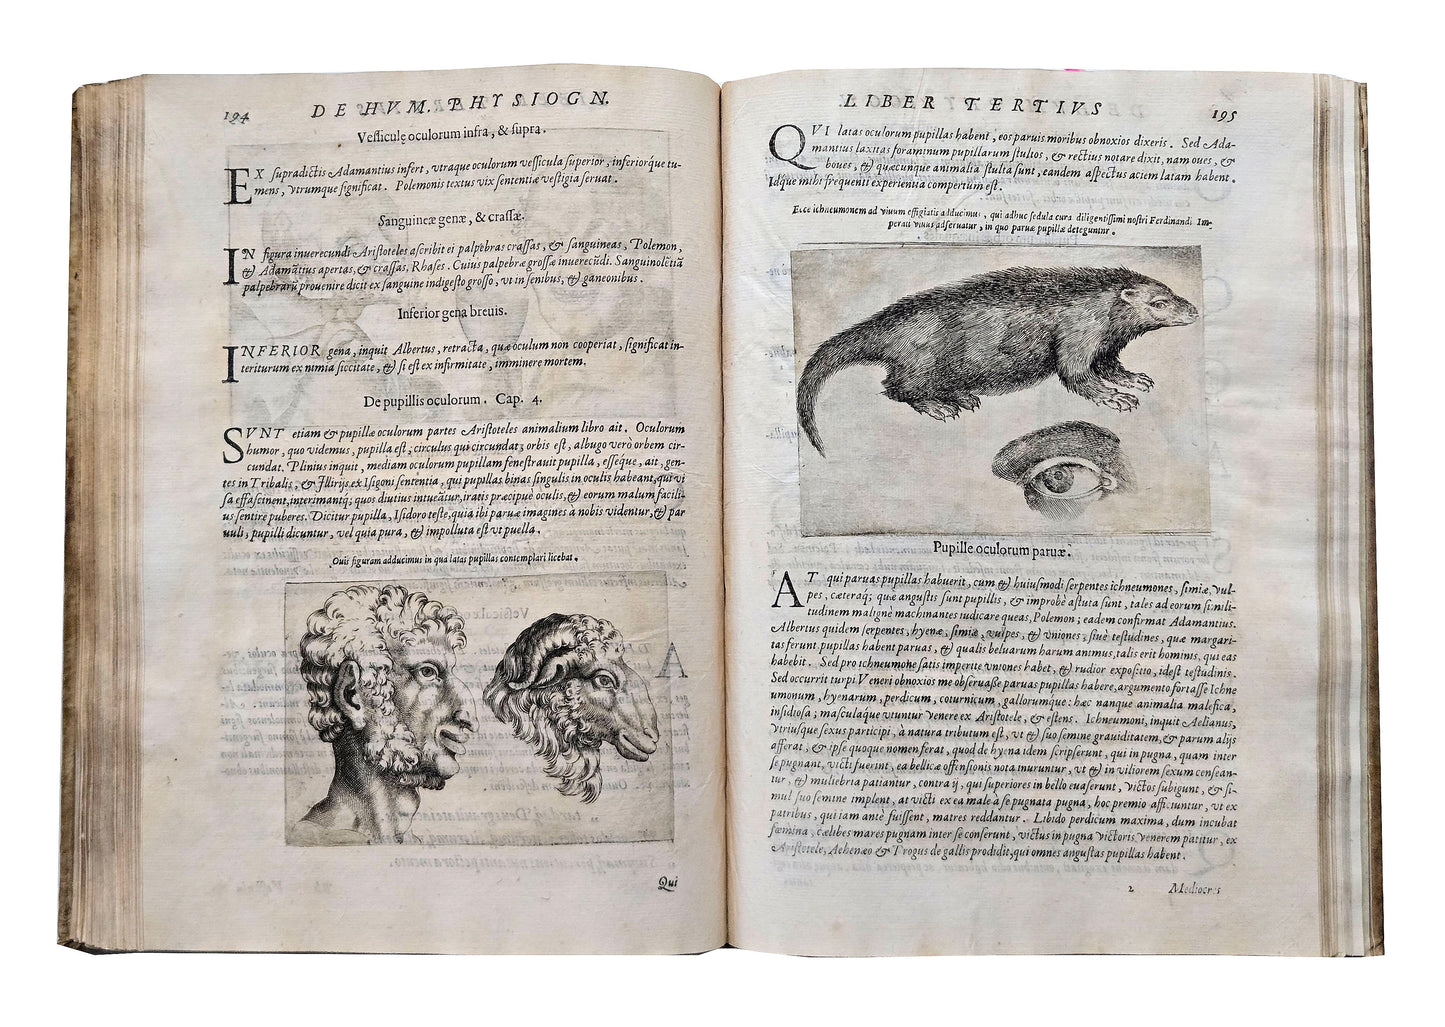 194 DE HVM. PHYSIOGN.
Vessiculę oculorum infra, & supra.
EX supradictis Adamantius infert, vtraque oculorum vessicula superior, inferiorq́ue tu-
mens, vtrumque significat. Polemonis textus vix sententiæ vestigia seruat.
Sanguineæ genæ, & crassæ.
IN figura inuerecundi Aristoteles ascribit ei palpebras crassas, & sanguineas, Polemon,
& Adamãtius apertas, & crassas, Rhases. Cuius palpebræ grossæ inuerecũdi. Sanguinolẽtiã
palpebrarũ prouenire dicit ex sanguine indigesto grosso, vt in senibus, & ganeonibus.
Inferior gena breuis.
INFERIOR gena, inquit Albertus, retracta, quæ oculum non cooperiat, significat in-
teriturum ex nimia siccitate, & si est ex infirmitate, imminere mortem.
De pupillis oculorum. Cap. 4.
SVNT etiam & pupillæ oculorum partes Aristoteles animalium libro ait. Oculorum
humor, quo videmus, pupilla est; circulus qui circundat; orbis est, albugo verò orbem cir-
cundat. Plinius inquit, mediam oculorum pupillam fenestrauit pupilla, esséque, ait, gen-
tes in Tribalis, & Illirijs ex Isigoni sententia, qui pupillas binas singulis in oculis habeant, qui vi
sa effascinent, interimantq́; quos diutius intueãtur, iratis præcipuè oculis, & eorum malum facili-
us sentire puberes. Dicitur pupilla, Isidoro teste, quia ibi paruæ imagines à nobis videntur, & par
uuli, pupilli dicuntur, vel quia pura, & impolluta est vt puella.
Ouis figuram adducimus in qua latas pupillas contemplari licebat.
Qui
LIBER TERTIVS 195
QVI latas oculorum pupillas habent, eos paruis moribus obnoxios dixeris. Sed Ada-
mantius laxitas foraminum pupillarum stultos, & rectius notare dixit, nam oues, &
boues, & quæcunque animalia stulta sunt, eandem aspectus aciem latam habent.
Idque mihi frequenti experientia compertum est.
Ecce ichneumonem ad viuum effigiatis adducimus, qui adhuc sedula cura diligentissimi nostri Ferdinandi Im-
perati viuus adseruatur, in quo paruæ pupillæ deteguntur.
Pupillę oculorum paruæ.
AT qui paruas pupillas habuerit, cum & huiusmodi serpentes ichneumones, simiæ, vul-
pes, cæteraq́; quæ angustis sunt pupillis, & improbè astuta sunt, tales ad eorum simili-
tudinem malignè machinantes iudicare queas, Polemon; eadem confirmat Adamantius.
Albertus quidem serpentes, hyenæ, simiæ, vulpes, & vniones, siuè testudines, quæ margari-
tas ferunt pupillas habent paruas, & qualis beluarum harum animus, talis erit hominis, qui eas
habebit. Sed pro ichneumone satis imperite vniones habet, & rudior expositio, idest testudinis.
Sed occurrit turpi Veneri obnoxios me obseruasse paruas pupillas habere, argumento fortasse Ichne
umonum, hyenarum, perdicum, coturnicum, gallorumque: hæc nanque animalia malefica,
insidiosa; masculaq́ue vtuntur venere ex Aristotele, & estens. Ichneumoni, inquit Aelianus,
vtriusque sexus participi, à natura tributum est, vt & suo semine grauiditatem, & parum alijs
afferat, & ipse quoque nomen ferat, quod de hyena idem scripserunt, qui in pugna, quam inter
se pugnant, victi fuerint, ea bellicæ offensionis nota inuruntur, vt & in viliorem sexum censean-
tur, & muliebria patiantur, contra ij, qui superiores in bello euaserunt, victos subigunt, & si-
mul suo semine implent, at victi ex ea male à se pugnata pugna, hoc premio afficiuntur, vt ex
patribus, qui iam antè fuissent, matres reddantur. Libido perdicum maxima, dum incubat
fœmina, cælibes mares pugnam inter se conserunt, victus in pugna victoris venerem patitur, ex
Aristotele, Aehenæo & Trogus de gallis prodidit, qui omnes angustas pupillas habent.
2 Mediocres